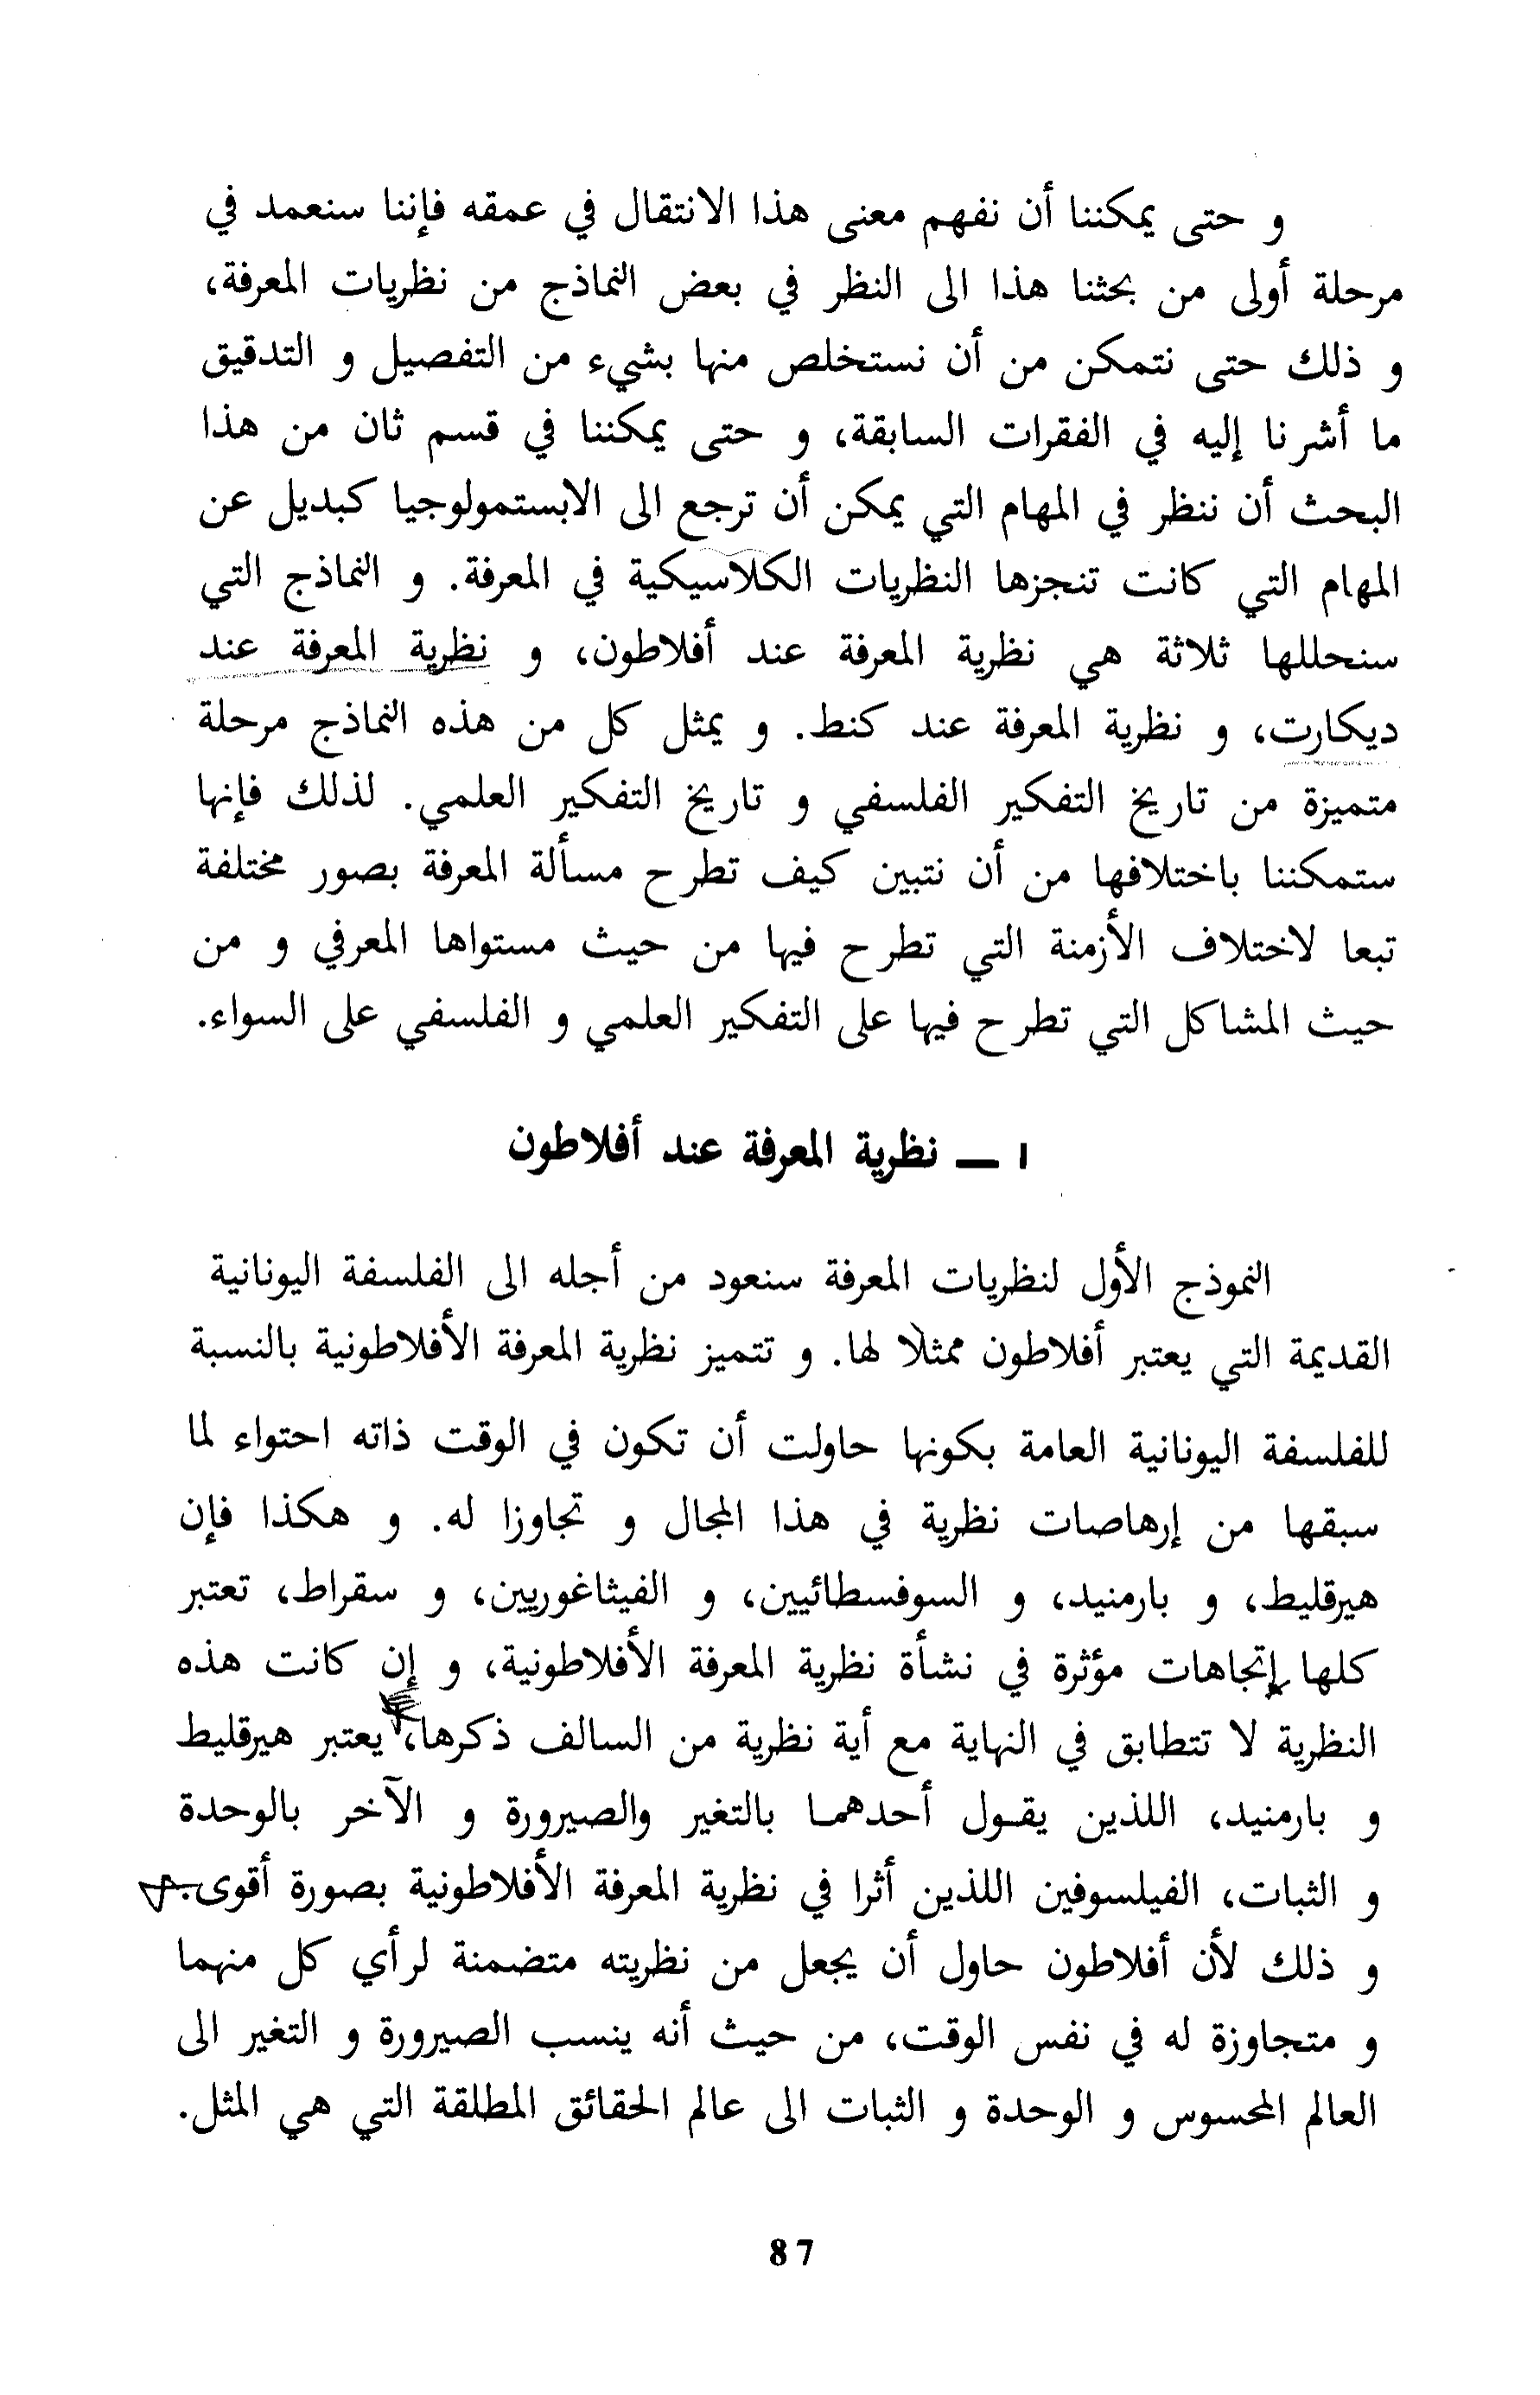 و حتى يمكننا أن نفهم معنى هذا الانتقال في عمقه فإننا سنعمد في
مرحلة أولى من بحثنا هذا الى النظر في بعض النماذج من نظريات المعرفة،
و ذلك حتى نتمكن من أن نستخلص منها بشيء من التفصيل و التدقيق
ما أشرنا إليه في الفقرات السابقة، و حتى يمكننا في قسم ثان من هذا
البحث أن ننظر في المهام التي يمكن أن ترجع الى الابستمولوجيا كبديل عن
المهام التي كانت تنجزها النظريات الكلاسيكية في المعرفة. و النماذج التي
سنحللها ثلاثة هي نظرية المعرفة عند أفلاطون، و نظرية المعرفة عند
ديكارت، و نظرية المعرفة عند كنط. و يمثل كل من هذه النماذج مرحلة
متميزة من تاريخ التفكير الفلسفي و تاريخ التفكير العلمي. لذلك فإنها
ستمكننا باختلافها من أن نتبين كيف تطرح مسألة المعرفة بصور مختلفة
تبعا لاختلاف الأزمنة التي تطرح فيها من حيث مستواها المعرفي و من
حيث المشاكل التي تطرح فيها على التفكير العلمي و الفلسفي على السواء.
ا — نظرية المعرفة عند أفلاطون
النموذج الأول لنظريات المعرفة سنعود من أجله الى الفلسفة اليونانية
القديمة التي يعتبر أفلاطون ممثلا لها. و تتميز نظرية المعرفة الأفلاطونية بالنسبة
للفلسفة اليونانية العامة بكونها حاولت أن تكون في الوقت ذاته احتواء لما
سبقها من إرهاصات نظرية في هذا المجال و تجاوزا له. و هكذا فإن
هيرقليط، و بارمنيد، و السوفسطائيين، و الفيثاغوريين، و سقراط، تعتبر
كلها إتجاهات مؤثرة في نشأة نظرية المعرفة الأفلاطونية، و إن كانت هذه
النظرية لا تتطابق في النهاية مع أية نظرية من السالف ذكرها، يعتبر هيرقليط
و بارمنيد، اللذين يقول أحدهما بالتغير والصيرورة و الآخر بالوحدة
و الثبات، الفيلسوفين اللذين أثرا في نظرية المعرفة الأفلاطونية بصورة أقوى.
و ذلك لأن أفلاطون حاول أن يجعل من نظريته متضمنة لرأي كل منهما
و متجاوزة له في نفس الوقت، من حيث أنه ينسب الصيرورة و التغير الى
العالم المحسوس و الوحدة و الثبات الى عالم الحقائق المطلقة التي هي المثل.
87